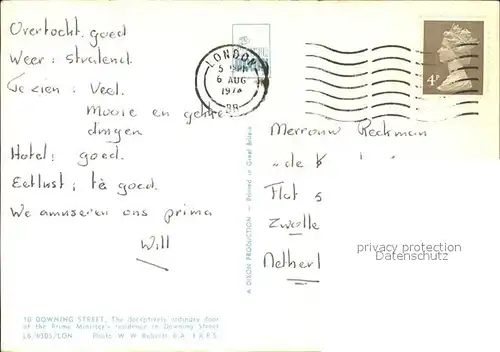 Overtocht: goed
Weer: stralend.
Gezien: Veel.
Mooie en gekke
dingen
Hotel: goed.
Eetlust: té goed.
We amuseren ons prima
Will
LONDON
5 PM
6 AUG
197
4P
Mevrouw Reckman
"de
Flat 5
Zwolle
Netherl
privacy protection
www.
A DIXON PRODUCTION – Printed in Great Britain
10 DOWNING STREET, The deceptively ordinary door
of the Prime Minister's residence in Downing Street
L6/9305/LON Photo W. W. Roberts